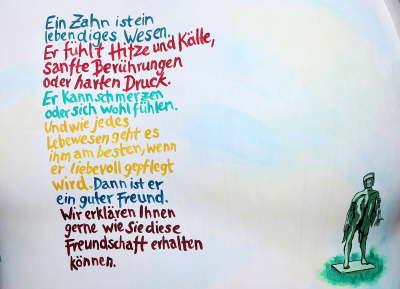 Ein Zahn ist ein
lebendiges Wesen.
Er fühlt Hitze und Kälte,
sanfte Berührungen
oder harten Druck.
Er kann schmerzen
oder sich wohl fühlen.
Und wie jedes
Lebewesen geht es
ihm am besten, wenn
er liebevoll gepflegt
wird. Dann ist er
ein guter Freund.
Wir erklären Ihnen
gerne wie Sie diese
Freundschaft erhalten
können.